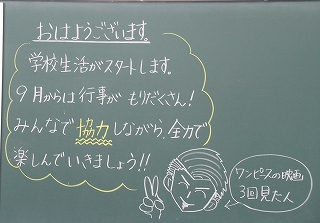 おはようございます。
学校生活がスタートします。
9月からは行事がもりだくさん!
みんなで協力しながら、全力で
楽しんでいきましょう!!
ワンピースの映画
3回見た人